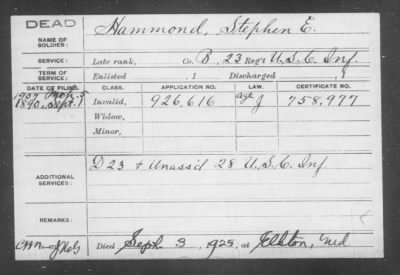 DEAD
Hammond, Stephen E.
NAME OF SOLDIER:
SERVICE: Late rank, Co. B, 23 Reg't U.S.C. Inf.
TERM OF SERVICE: Enlisted , 1 Discharged , 1
DATE OF FILING. CLASS. APPLICATION NO. LAW. CERTIFICATE NO.
1907
1890, Sept. Invalid, 926,616 age J 758,977
Widow,
Minor,
D 23 + Unass'd 28 U.S.C. Inf.
ADDITIONAL SERVICES:
REMARKS:
Died Sept. 3, 1925, at Elkton, Md.